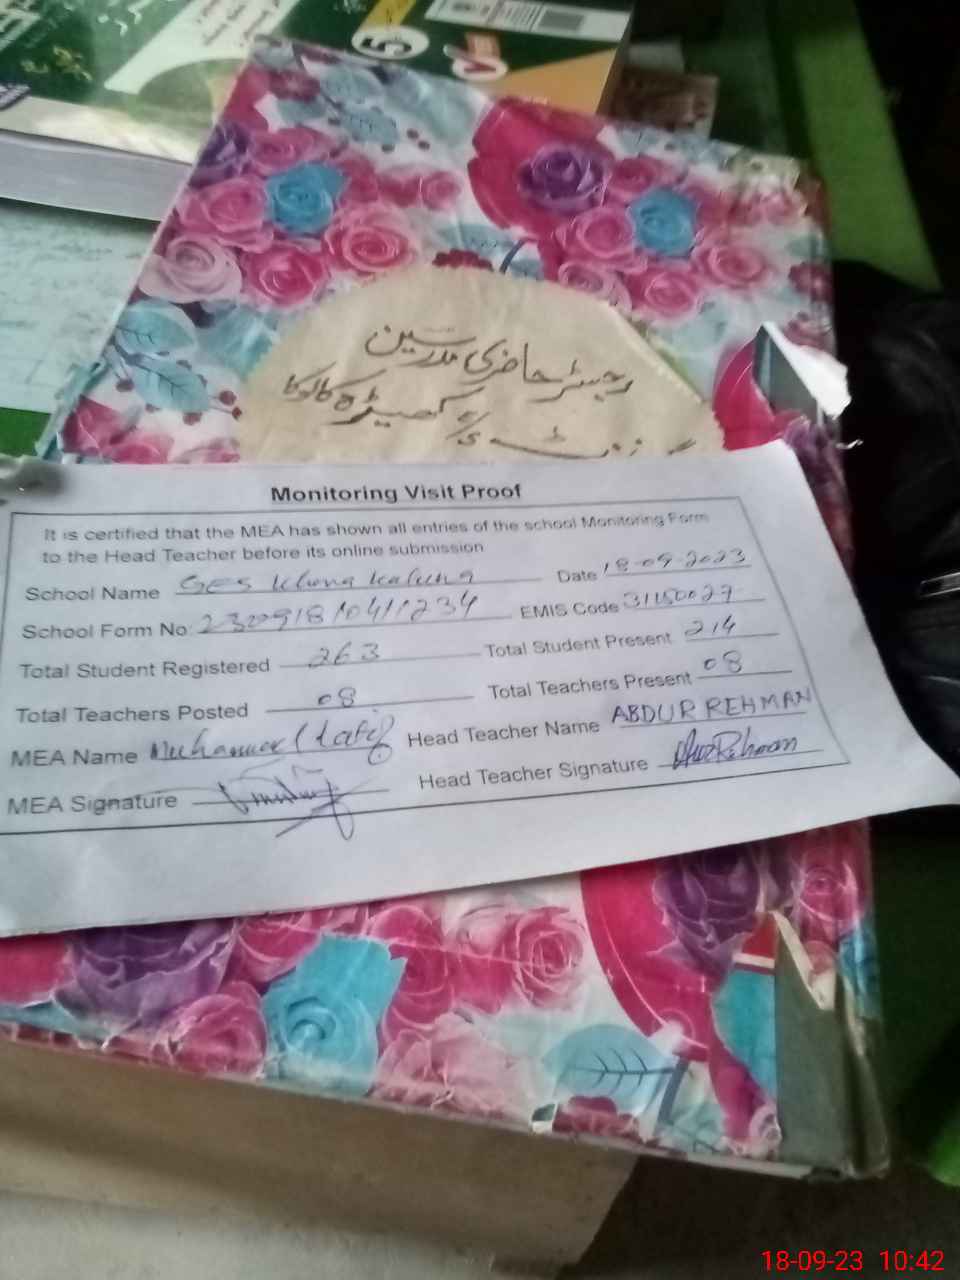 5
رجسٹر حاضری مدرسین
کھیڑہ کالوکا
Monitoring Visit Proof
It is certified that the MEA has shown all entries of the school Monitoring Form
to the Head Teacher before its online submission
School Name GES Date 18-09-2023
School Form No. 23091810411234 EMIS Code 31150027
Total Student Registered 263 Total Student Present 214
Total Teachers Posted 08 Total Teachers Present 08
MEA Name Muhammad Latif Head Teacher Name ABDUR REHMAN
MEA Signature Head Teacher Signature
18-09-23 10:42